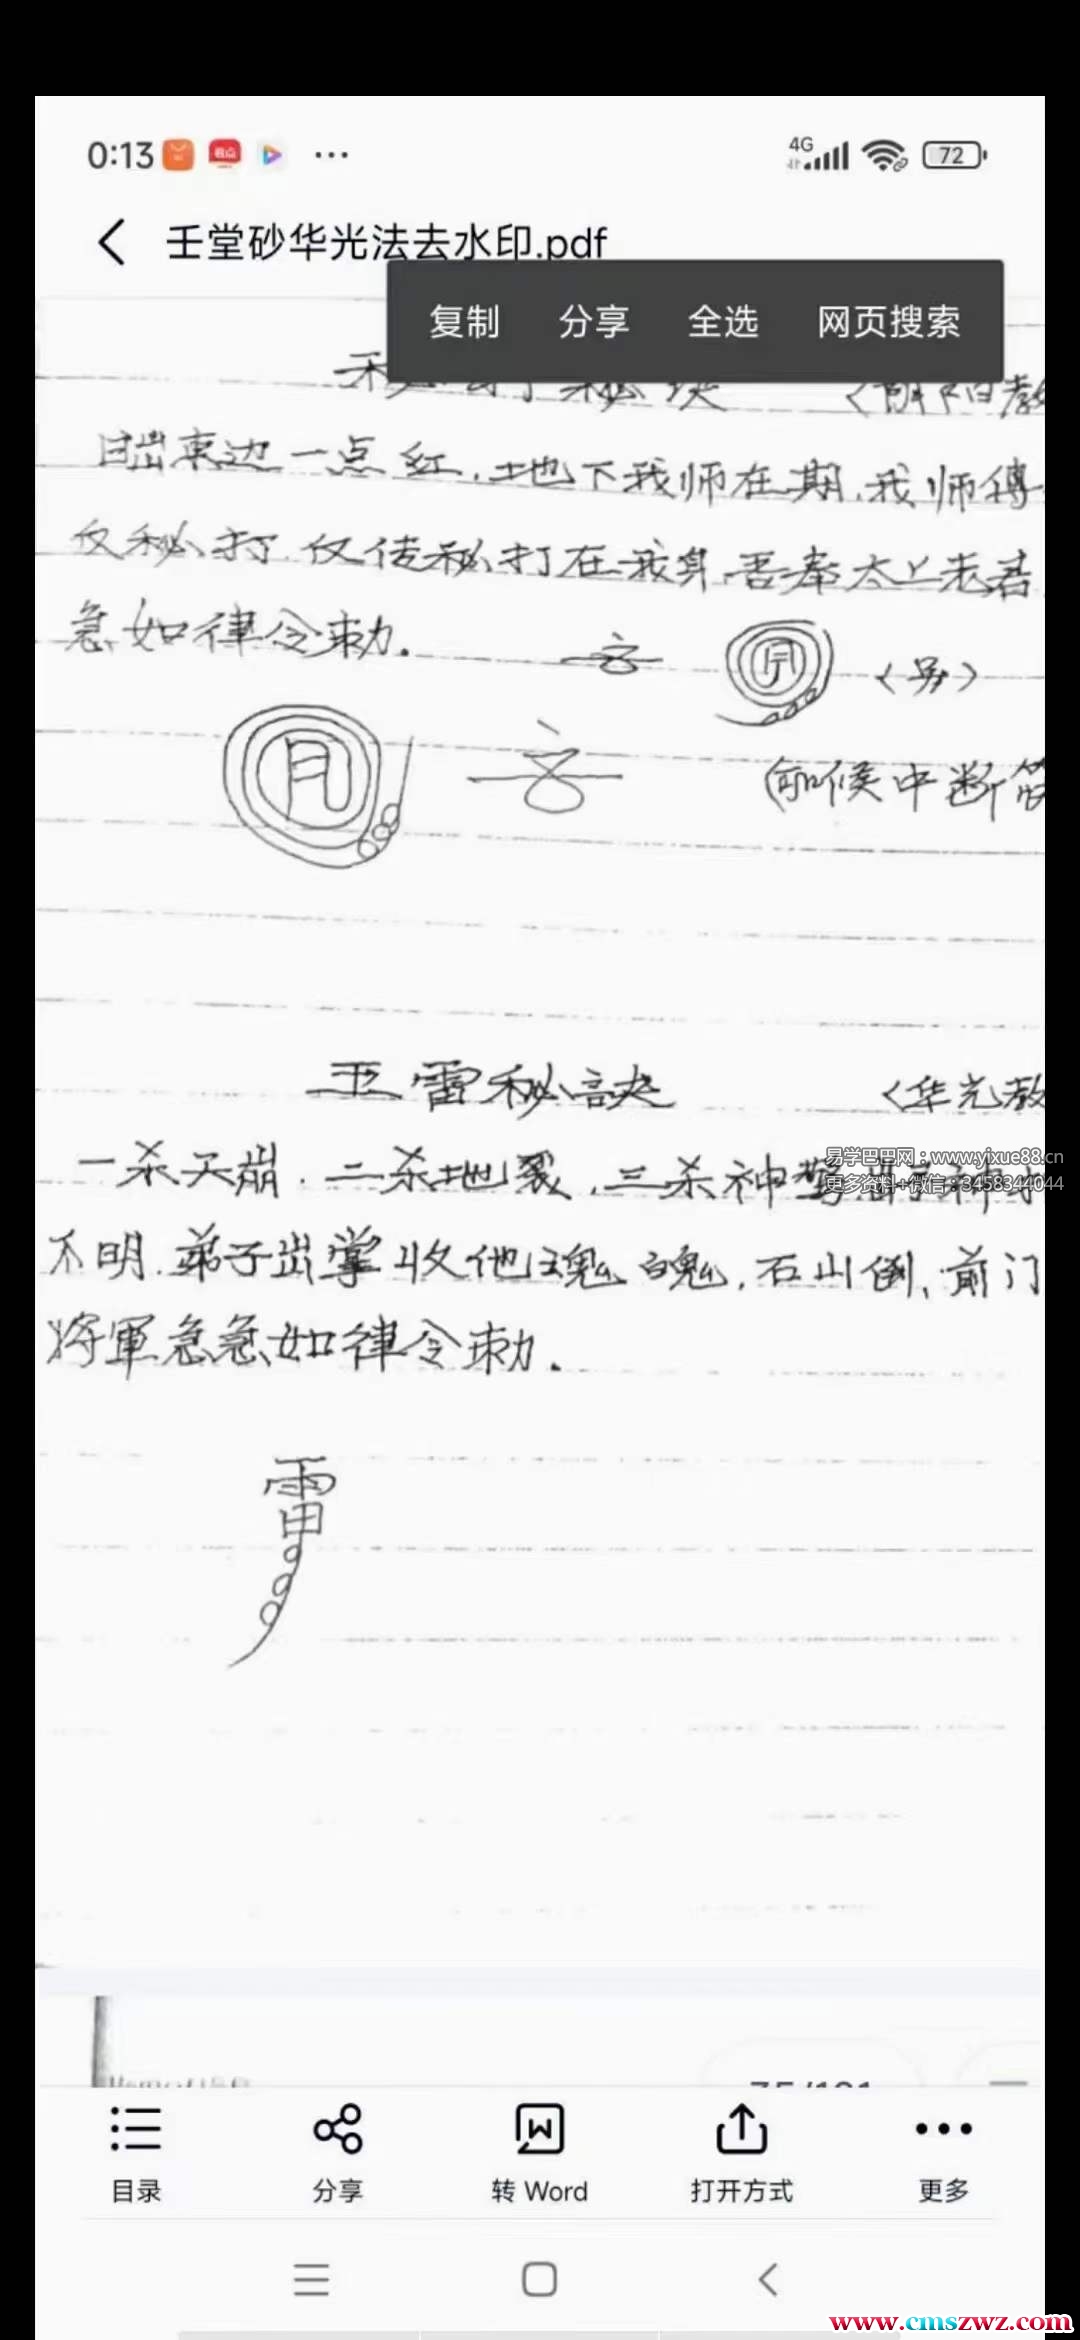 0:13 4G 72
壬堂砂华光法去水印.pdf
复制 分享 全选 网页搜索
日出东边一点红,地下我师在期,我师傅
仅秘打,仅传秘打在我身,吾奉太上老君
急如律令勅.
(另)
五雷秘訣 〈华光教
一杀天崩,二杀地裂,三杀神驚
不明,弟子出掌收他魂魄,石山倒,前门
将軍急急如律令勅.
雷
易学巴巴网:www.yixue88.cn
更多资料+微信:3458344044
目录 分享 转 Word 打开方式 更多
www.cmszwz.com